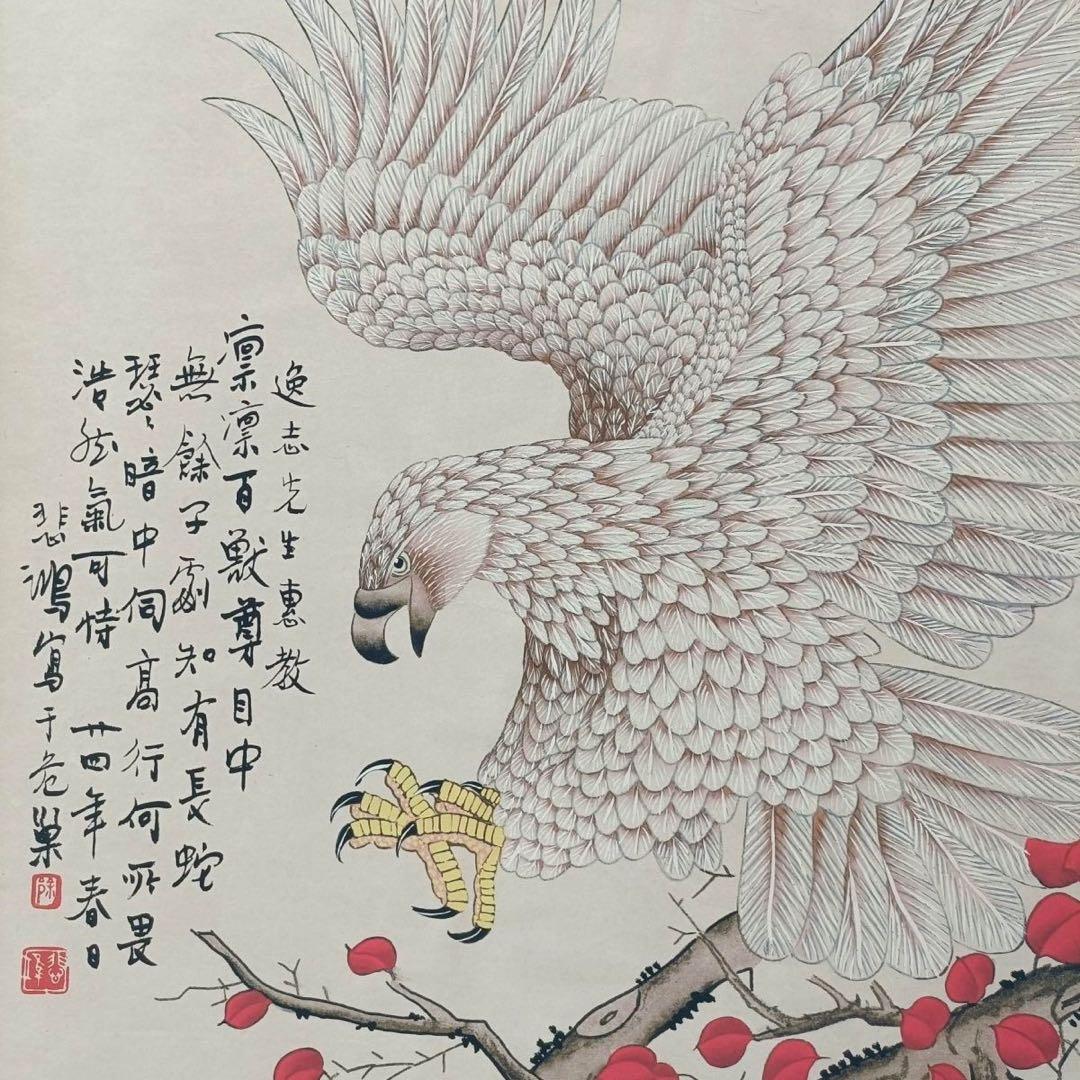 逸志先生惠教
凛凛百獸尊目中
無餘子劇知有長蛇
瑟瑟暗中伺高行何所畏
浩然氣可恃 廿四年春日
悲鴻寫于危巢
徐
悲鴻